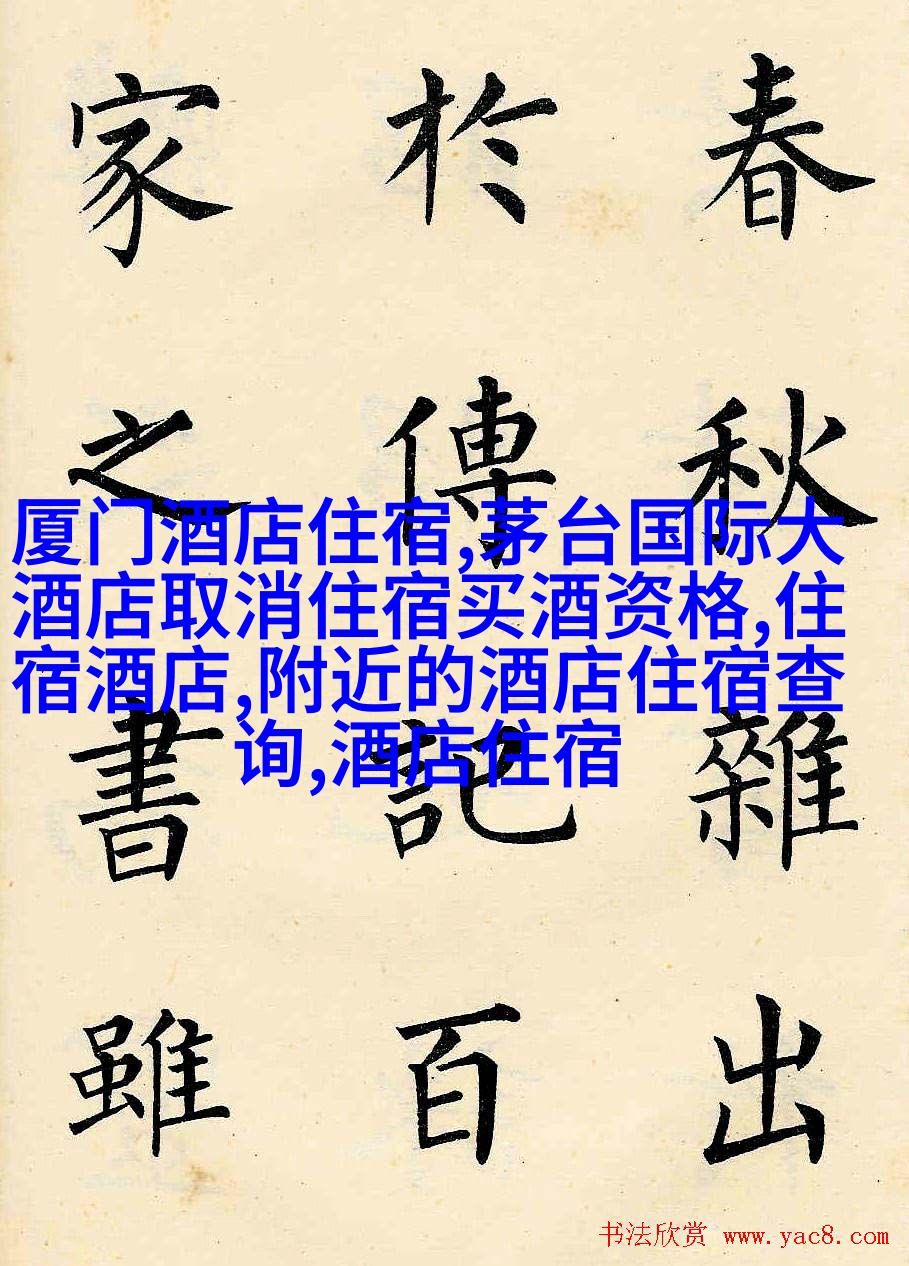 春秋雜出
於傳記百
家之書雖
厦门酒店住宿,茅台国际大
酒店取消住宿买酒资格,住
宿酒店,附近的酒店住宿查
询,酒店住宿
书法欣赏 www.yac8.com